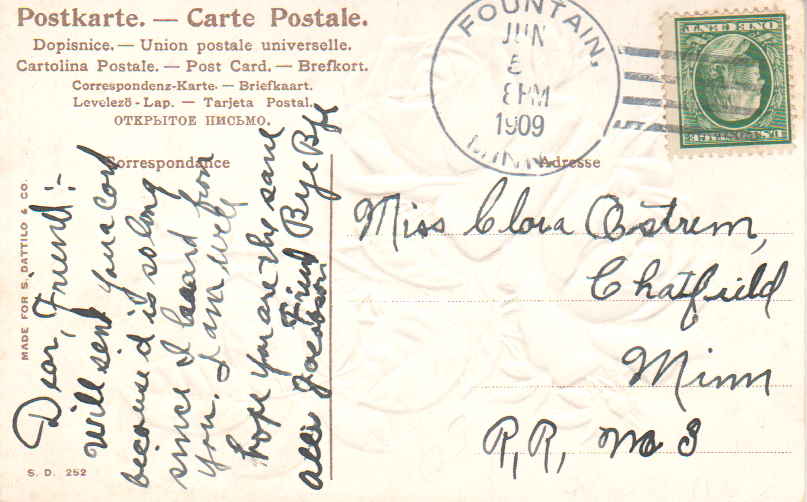 Postkarte. — Carte Postale.
Dopisnice. — Union postale universelle.
Cartolina Postale. — Post Card. — Brefkort.
Correspondenz-Karte. — Briefkaart.
Levelező-Lap. — Tarjeta Postal.
ОТКРЫТОЕ ПИСЬМО.
Correspondance
Adresse
FOUNTAIN,
JUN
5
8 PM
1909
MINN.
U.S. POSTAGE
ONE CENT
MADE FOR S. DATTILO & CO.
Dear, Friend:-
Will send you a card
because it is so long
since I heard from
you. I am well
hope you are the same
Friend Bye Bye
Allie Jacobson
Miss Clora Ostrem,
Chatfield
Minn
R, R, No 3
S. D. 252